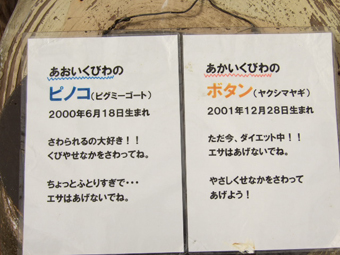 あおいくびわの
ピノコ(ピグミーゴート)
2000年6月18日生まれ
さわられるの大好き!!
くびやせなかをさわってね。
ちょっとふとりすぎで・・・
エサはあげないでね。
あかいくびわの
ボタン(ヤクシマヤギ)
2001年12月28日生まれ
ただ今、ダイエット中!!
エサはあげないでね。
やさしくせなかをさわって
あげよう!